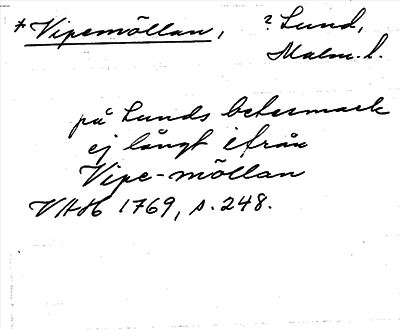 * Vipemöllan, ? Lund,
Malm. l.
på Lunds betesmark
ej långt ifrån
Vipe-möllan
VAH 1769, s. 248.